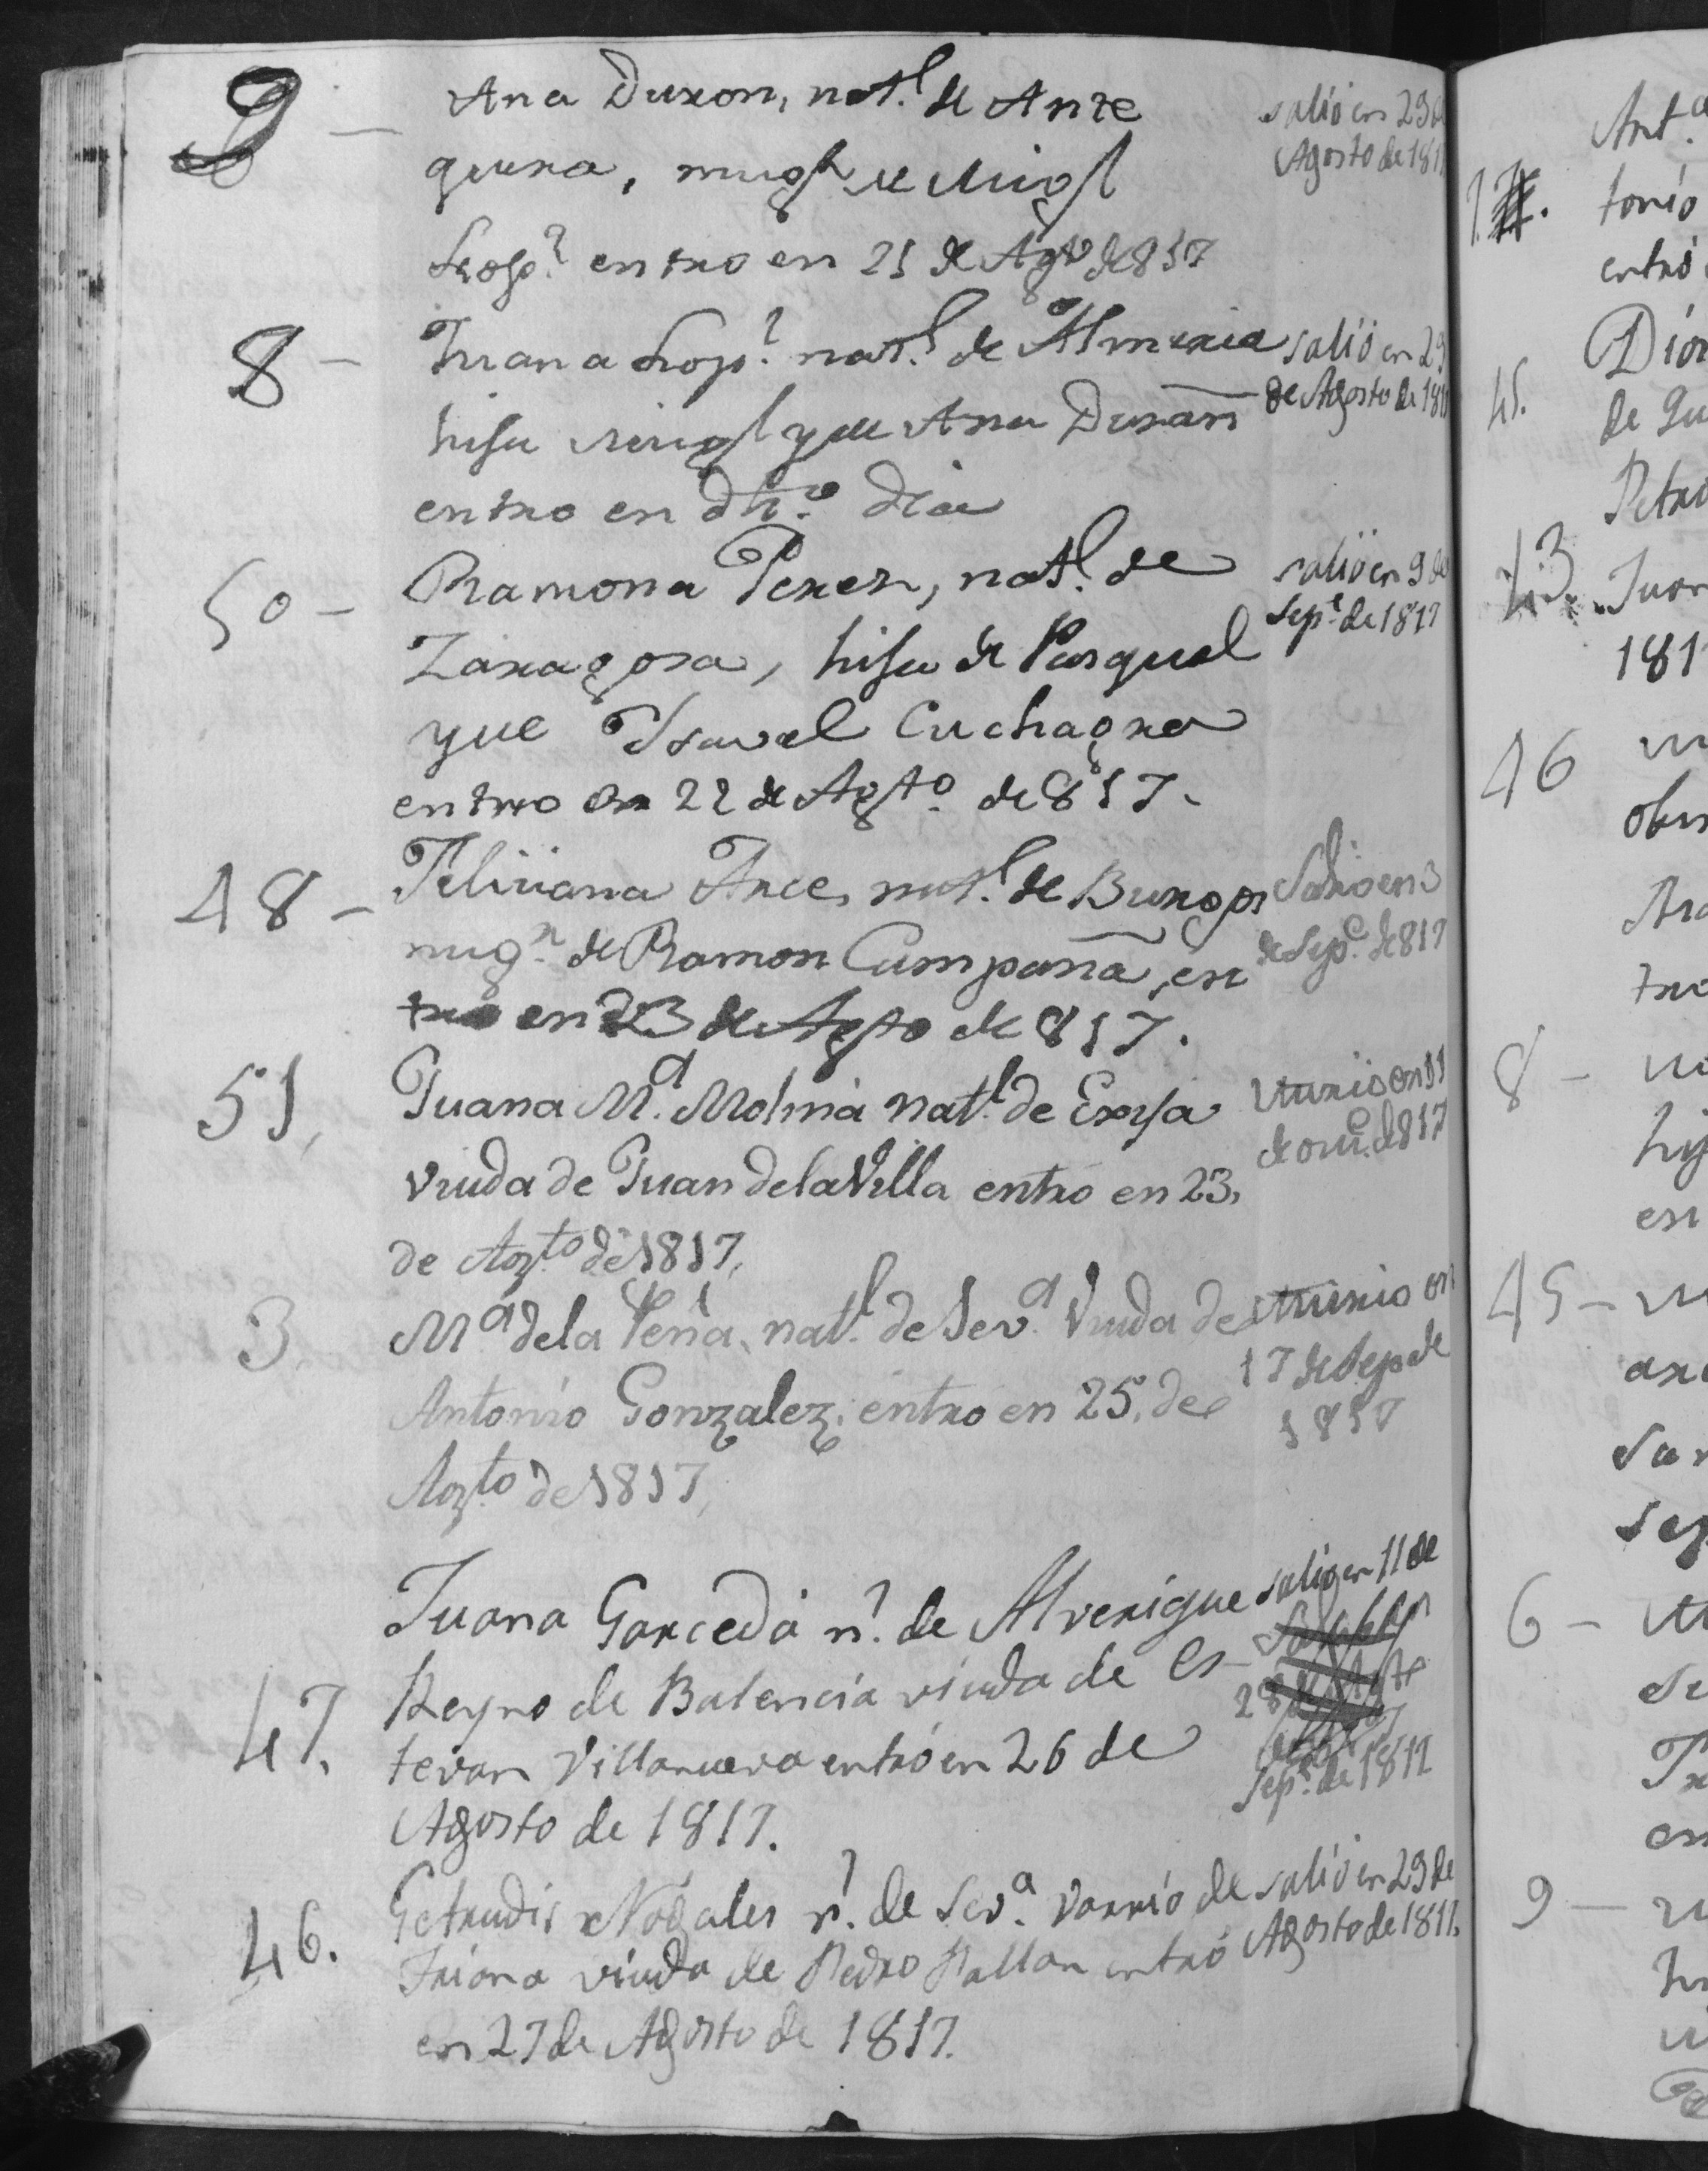 9 — Ana Duron, nat.l de Ante
quera, mugr de Migl
Lop.z entro en 21 de Agto de 817
salió en 29 de
Agosto de 181
8 — Juana Lop.z nat.l de Almeria
hija Migl y de Ana Durán
entro en dho. dia
salió en 29
de Agosto de 181
50 — Ramona Perez, nat.l de
Zaragoza, hija de Pasqual
y de Ysavel Cuchagra
entro en 22 de Agto. de 817.
salió en 9 de
Sepe. de 1817
48 — Feliciana Arce, nat.l de Burgos
mugr. de Ramon Campaña, en
tro en 23 de Agsto de 817.
Salio en 3
de Sepe. de 817
51, Juana M.a Molina natl. de Exija
Viuda de Juan de la Villa entro en 23,
de Agto. de 1817,
Murio en 11
de de 817
3. M.a de la Peña, natl. de Sev.a Viuda de
Antonio Gonzalez, entro en 25, de
Agto. de 1817,
Murio en
17 de Sep de
1817
47. Juana Garceda n.l de Alverique
Reyno de Balencia viuda de Es-
tevan Villanueva entró en 26 de
Agosto de 1817.
salió en 11 de
28
Sepe. de 1817
46. Getrudis Nogales n.l de Sev.a Varrio de
Triana viuda de Pedro Pallan entró
en 27 de Agosto de 1817.
salió en 29 de
Agosto de 1817.
Ant.a
17. tonio
entró
45. Dion
de Gu
Petro
43. Juan
181
46
8 —
hij
en
45 —
6 —
9 —